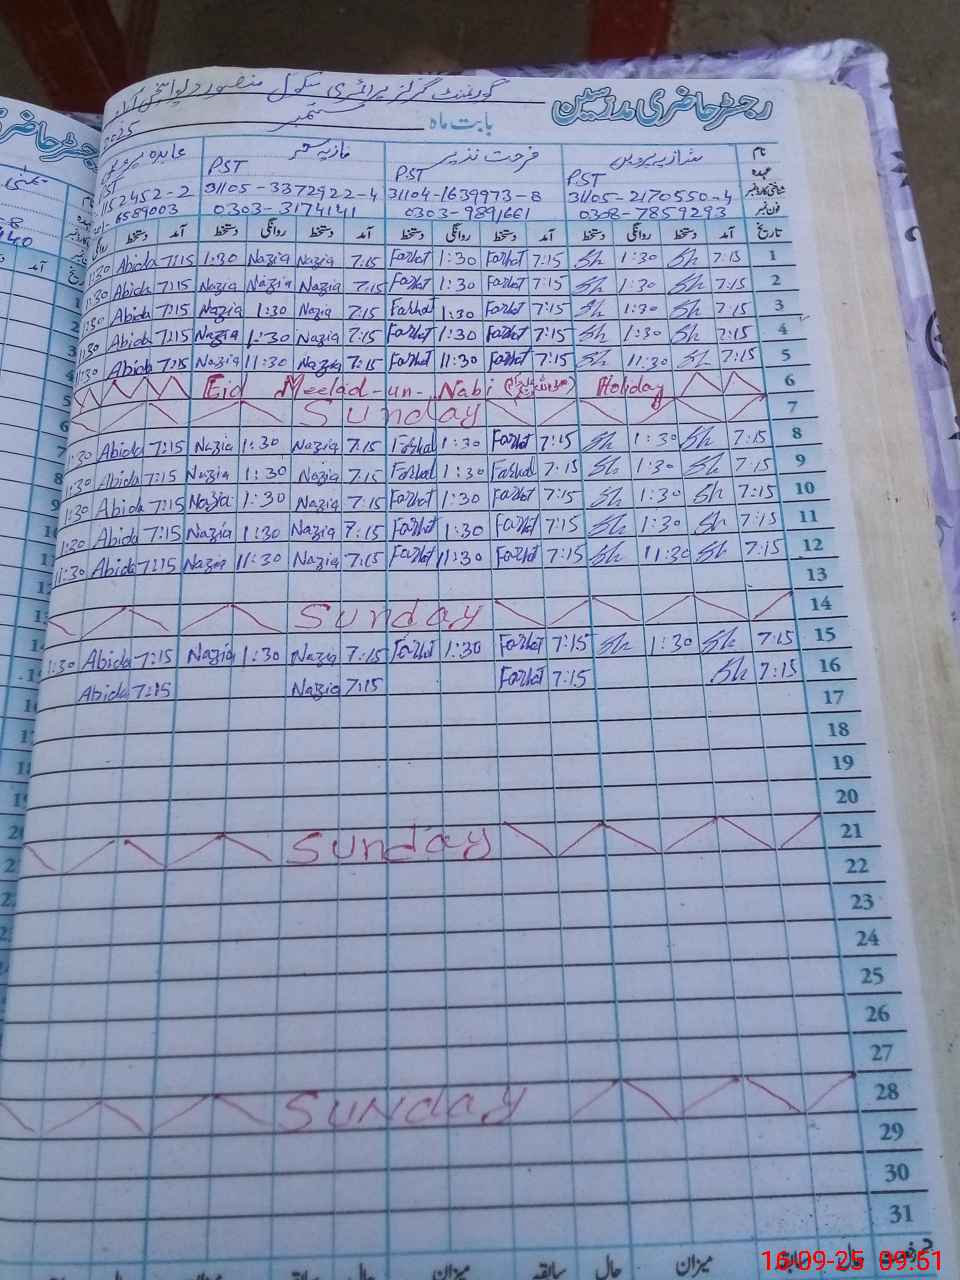 رجسٹر حاضری مدرسین گورنمنٹ گرلز پرائمری سکول منصور
بابت ماہ ستمبر 2025
نام شازیہ پروین فرحت نذیر نازیہ عابدہ
عہدہ PST PST PST PST
31105-2170550-4 31104-1639973-8 31105-3372922-4 1152452-2
فون نمبر 0308-7859293 0303-9891661 0303-3174141 6589003
تاریخ آمد دستخط روانگی دستخط آمد دستخط روانگی دستخط آمد دستخط روانگی دستخط آمد دستخط
1:30 Abida 7:15 1:30 Nazia Nazia 7:15 Farhat 1:30 Farhat 7:15 Sh 1:30 Sh 7:15 1
1:30 Abida 7:15 Nazia Nazia Nazia 7:15 Farhat 1:30 Farhat 7:15 Sh 1:30 Sh 7:15 2
1:30 Abida 7:15 Nazia 1:30 Nazia 7:15 Farhat 1:30 Farhat 7:15 Sh 1:30 Sh 7:15 3
1:30 Abida 7:15 Nazia 1:30 Nazia 7:15 Farhat 1:30 Farhat 7:15 Sh 1:30 Sh 7:15 4
11:30 Abida 7:15 Nazia 11:30 Nazia 7:15 Farhat 11:30 Farhat 7:15 Sh 11:30 Sh 7:15 5
Eid Meelad-un-Nabi Holiday 6
Sunday 7
1:30 Abida 7:15 Nazia 1:30 Nazia 7:15 Farhat 1:30 Farhat 7:15 Sh 1:30 Sh 7:15 8
1:30 Abida 7:15 Nazia 1:30 Nazia 7:15 Farhat 1:30 Farhat 7:15 Sh 1:30 Sh 7:15 9
1:30 Abida 7:15 Nazia 1:30 Nazia 7:15 Farhat 1:30 Farhat 7:15 Sh 1:30 Sh 7:15 10
1:30 Abida 7:15 Nazia 1:30 Nazia 7:15 Farhat 1:30 Farhat 7:15 Sh 1:30 Sh 7:15 11
11:30 Abida 7:15 Nazia 11:30 Nazia 7:15 Farhat 11:30 Farhat 7:15 Sh 11:30 Sh 7:15 12
13
Sunday 14
1:30 Abida 7:15 Nazia 1:30 Nazia 7:15 Farhat 1:30 Farhat 7:15 Sh 1:30 Sh 7:15 15
Abida 7:15 Nazia 7:15 Farhat 7:15 Sh 7:15 16
17
18
19
20
Sunday 21
22
23
24
25
26
27
Sunday 28
29
30
31
سابقہ حال میزان سابقہ حال میزان
16-09-25 09:51